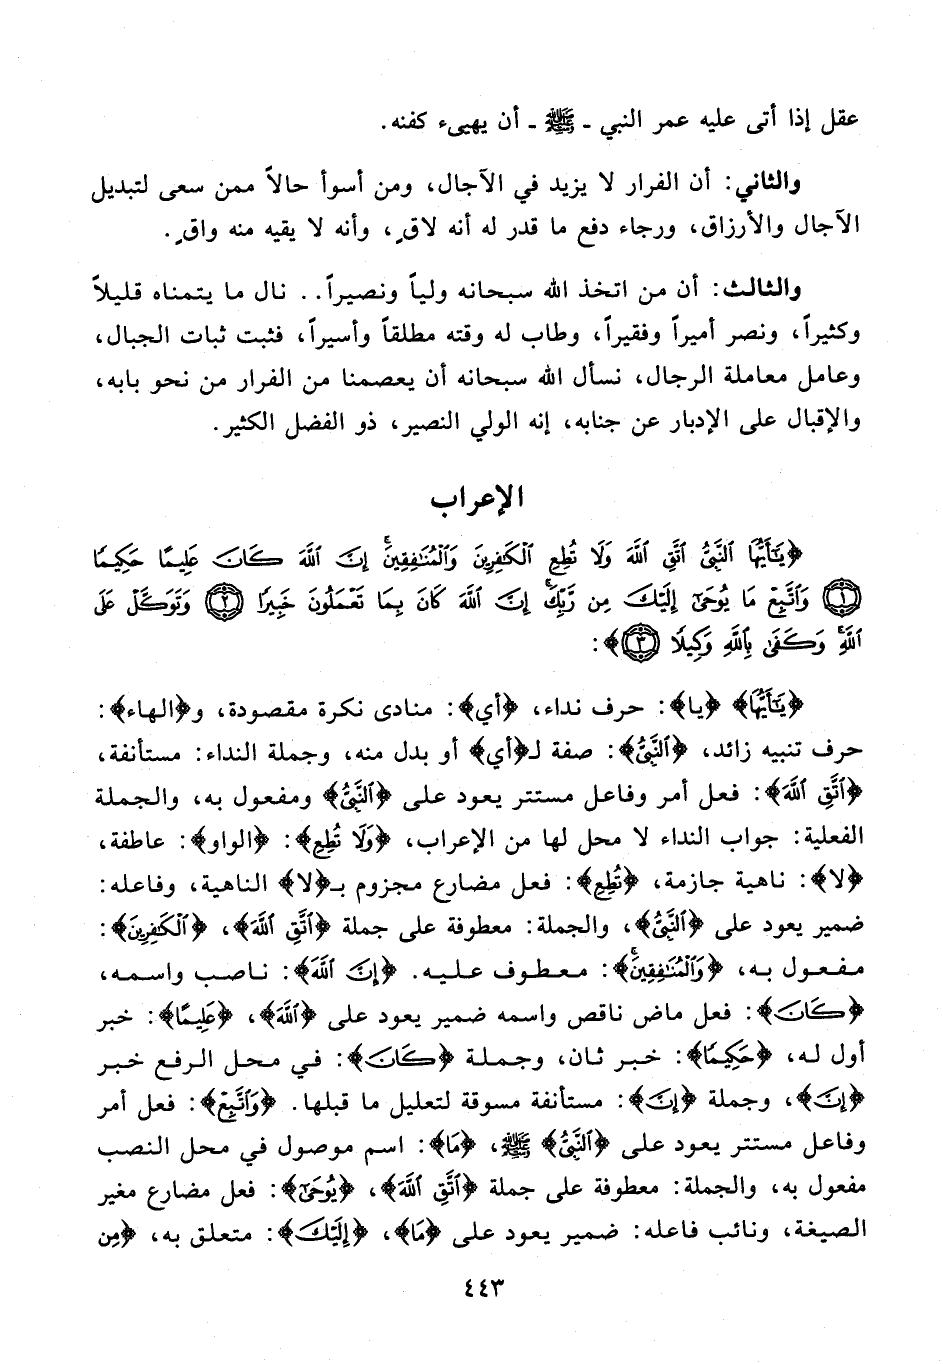 عقل إذا أتى عليه عمر النبي ـ ﷺ ـ أن يهيىء كفنه.
والثاني: أن الفرار لا يزيد في الآجال، ومن أسوأ حالاً ممن سعى لتبديل
الآجال والأرزاق، ورجاء دفع ما قدر له أنه لاقٍ، وأنه لا يقيه منه واقٍ.
والثالث: أن من اتخذ الله سبحانه ولياً ونصيراً.. نال ما يتمناه قليلاً
وكثيراً، ونصر أميراً وفقيراً، وطاب له وقته مطلقاً وأسيراً، فثبت ثبات الجبال،
وعامل معاملة الرجال، نسأل الله سبحانه أن يعصمنا من الفرار من نحو بابه،
والإقبال على الإدبار عن جنابه، إنه الولي النصير، ذو الفضل الكثير.
الإعراب
﴿يَٰٓأَيُّهَا ٱلنَّبِىُّ ٱتَّقِ ٱللَّهَ وَلَا تُطِعِ ٱلْكَٰفِرِينَ وَٱلْمُنَٰفِقِينَ ۗ إِنَّ ٱللَّهَ كَانَ عَلِيمًا حَكِيمًا
﴿١﴾ وَٱتَّبِعْ مَا يُوحَىٰٓ إِلَيْكَ مِن رَّبِّكَ ۚ إِنَّ ٱللَّهَ كَانَ بِمَا تَعْمَلُونَ خَبِيرًا ﴿٢﴾ وَتَوَكَّلْ عَلَى
ٱللَّهِ ۚ وَكَفَىٰ بِٱللَّهِ وَكِيلًا ﴿٣﴾﴾:
﴿يَٰٓأَيُّهَا﴾ ﴿يا﴾: حرف نداء، ﴿أي﴾: منادى نكرة مقصودة، و﴿الهاء﴾:
حرف تنبيه زائد، ﴿ٱلنَّبِىُّ﴾: صفة لـ﴿أي﴾ أو بدل منه، وجملة النداء: مستأنفة،
﴿ٱتَّقِ ٱللَّهَ﴾: فعل أمر وفاعل مستتر يعود على ﴿ٱلنَّبِىُّ﴾ ومفعول به، والجملة
الفعلية: جواب النداء لا محل لها من الإعراب، ﴿وَلَا تُطِعِ﴾: ﴿الواو﴾: عاطفة،
﴿لا﴾: ناهية جازمة، ﴿تُطِعِ﴾: فعل مضارع مجزوم بـ﴿لا﴾ الناهية، وفاعله:
ضمير يعود على ﴿ٱلنَّبِىُّ﴾، والجملة: معطوفة على جملة ﴿ٱتَّقِ ٱللَّهَ﴾، ﴿ٱلْكَٰفِرِينَ﴾:
مفعول به، ﴿وَٱلْمُنَٰفِقِينَ ۗ﴾: معطوف عليه. ﴿إِنَّ ٱللَّهَ﴾: ناصب واسمه،
﴿كَانَ﴾: فعل ماض ناقص واسمه ضمير يعود على ﴿ٱللَّهَ﴾، ﴿عَلِيمًا﴾: خبر
أول له، ﴿حَكِيمًا﴾: خبر ثان، وجملة ﴿كَانَ﴾: في محل الرفع خبر
﴿إِنَّ﴾، وجملة ﴿إِنَّ﴾: مستأنفة مسوقة لتعليل ما قبلها. ﴿وَٱتَّبِعْ﴾: فعل أمر
وفاعل مستتر يعود على ﴿ٱلنَّبِىُّ﴾ ﷺ، ﴿مَا﴾: اسم موصول في محل النصب
مفعول به، والجملة: معطوفة على جملة ﴿ٱتَّقِ ٱللَّهَ﴾، ﴿يُوحَىٰٓ﴾: فعل مضارع مغير
الصيغة، ونائب فاعله: ضمير يعود على ﴿مَا﴾، ﴿إِلَيْكَ﴾: متعلق به، ﴿مِن
٤٤٣